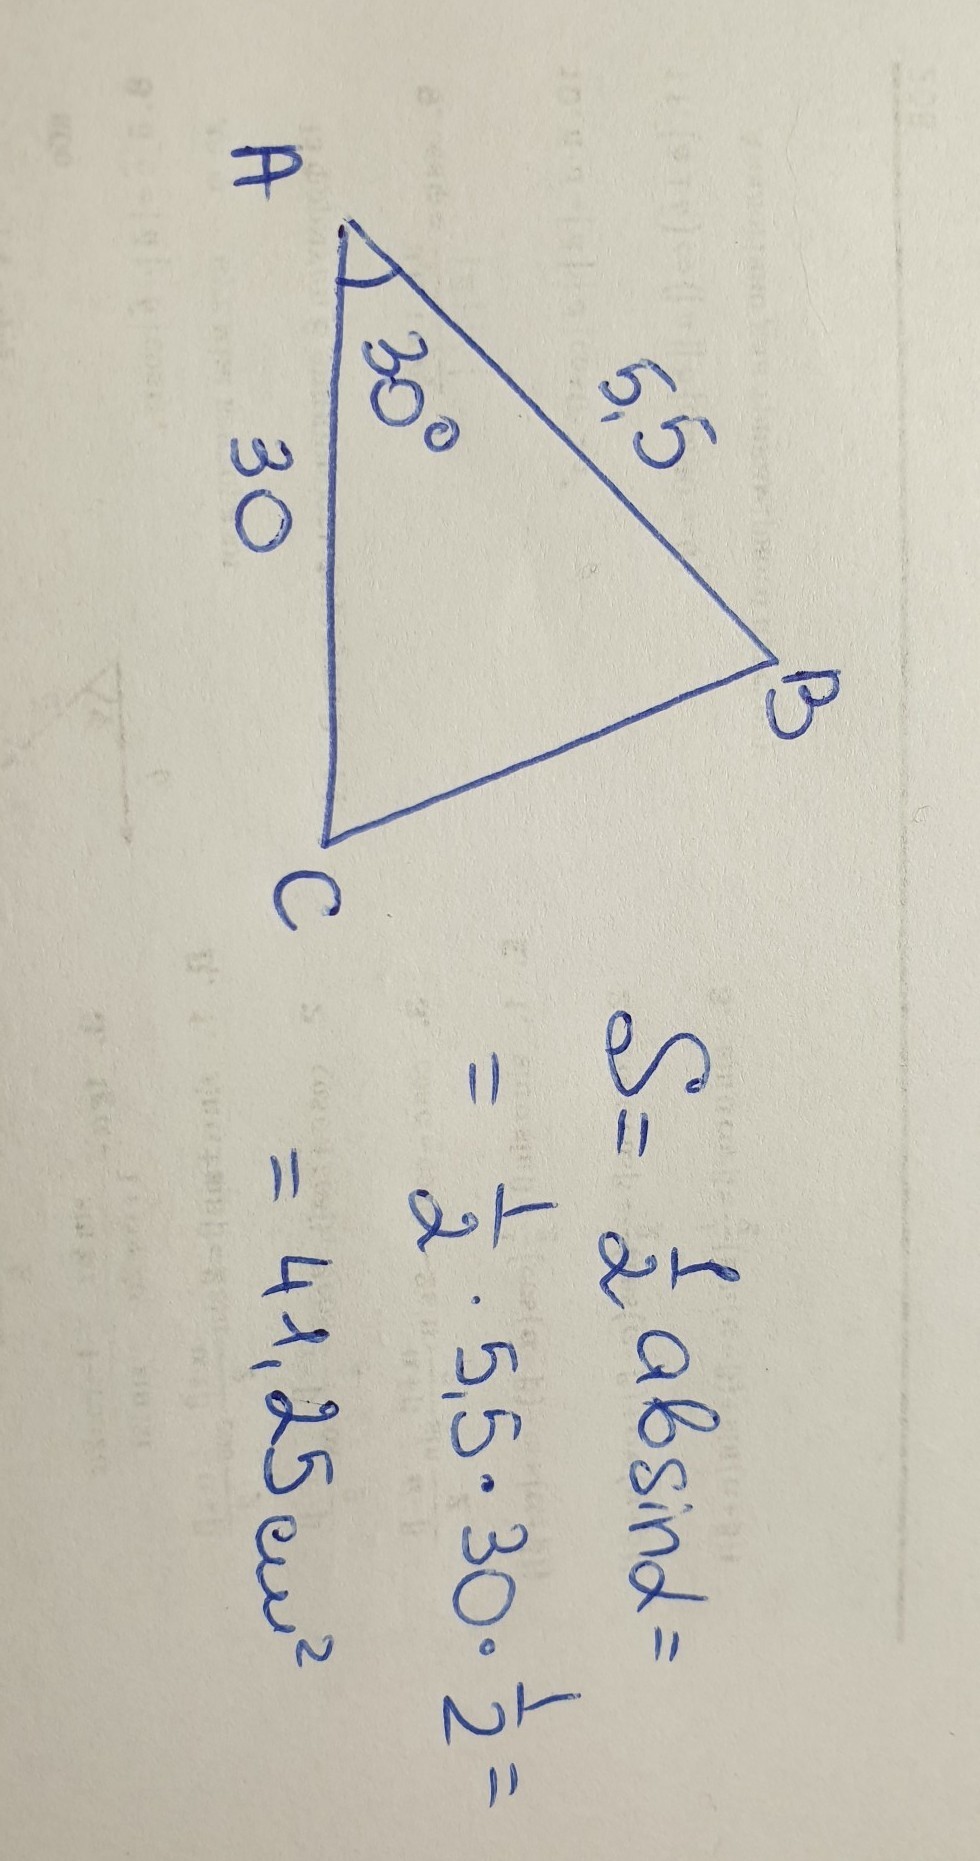 A
B
C
5,5
30°
30
S = 1/2 ab sinα =
= 1/2 · 5,5 · 30 · 1/2 =
= 41,25 см²